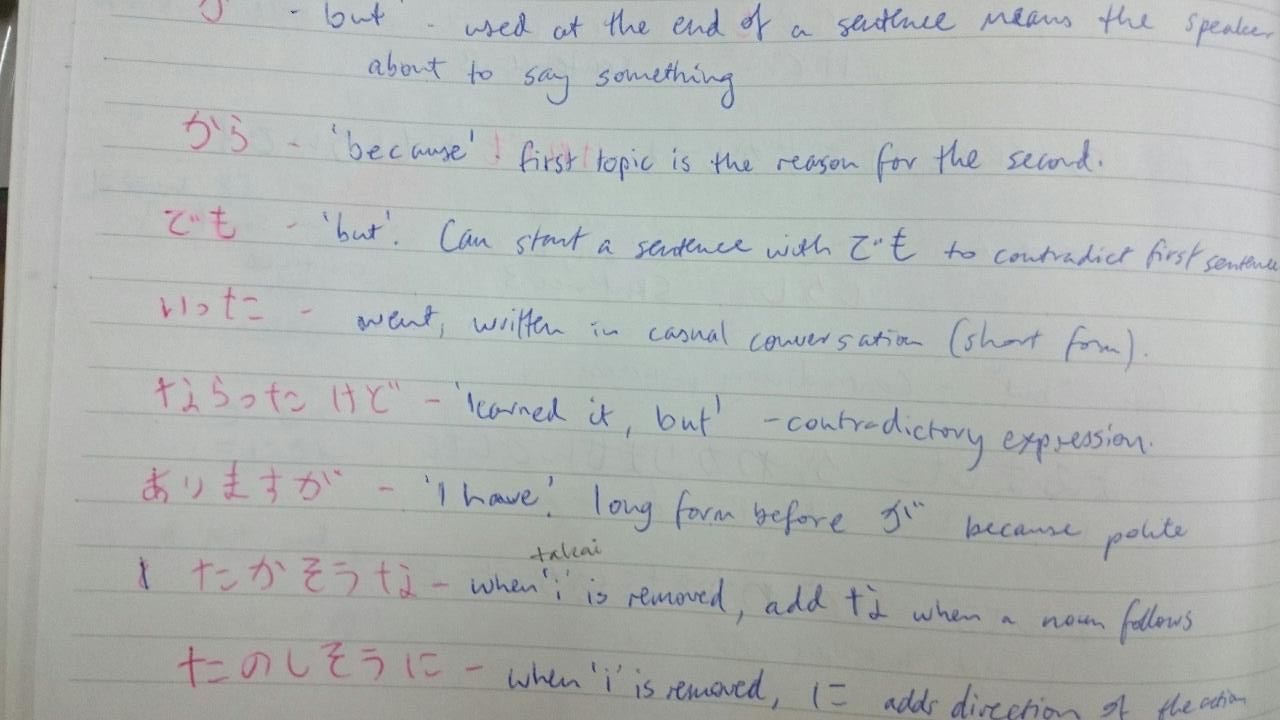 が - but - used at the end of a sentence means the speaker
about to say something
から - 'because'! first topic is the reason for the second.
でも - 'but'. Can start a sentence with でも to contradict first sentence
いった - went, written in casual conversation (short form).
ならったけど - 'learned it, but' - contradictory expression.
ありますが - 'I have'. long form before が because polite
takai
たかそうな - when 'i' is removed, add な when a noun follows
たのしそうに - when 'i' is removed, に adds direction of the action